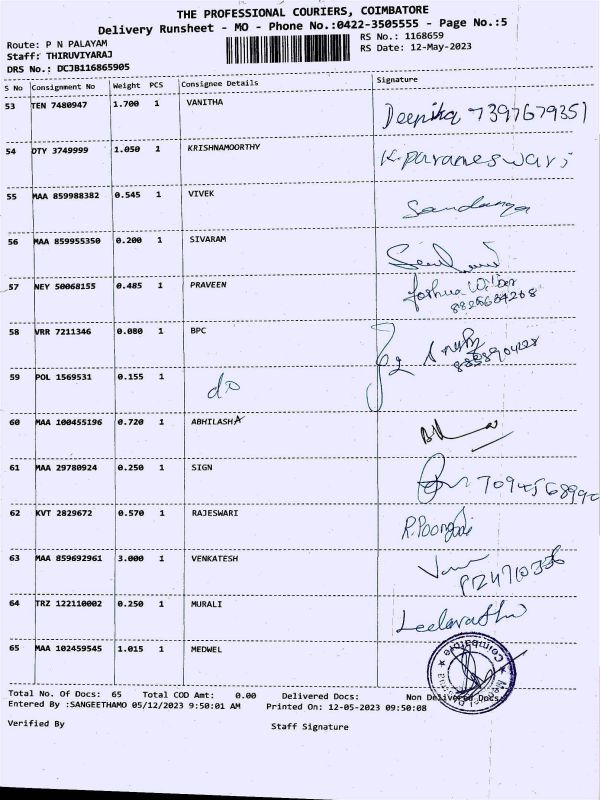 THE PROFESSIONAL COURIERS, COIMBATORE
Delivery Runsheet - MO - Phone No.:0422-3505555 - Page No.:5
Route: P N PALAYAM
RS No.: 1168659
Staff: THIRUVIYARAJ
RS Date: 12-May-2023
DRS No.: DCJB116865905
S No Consignment No Weight PCS Consignee Details Signature
53 TEN 7480947 1.700 1 VANITHA Deepika 7397679351
54 DTY 3749999 1.050 1 KRISHNAMOORTHY K.parameswari
55 MAA 859988382 0.545 1 VIVEK
56 MAA 859955350 0.200 1 SIVARAM
57 NEY 50068155 0.485 1 PRAVEEN Joshua
58 VRR 7211346 0.080 1 BPC
59 POL 1569531 0.155 1 do
60 MAA 100455196 0.720 1 ABHILASHA
61 MAA 29780924 0.250 1 SIGN
62 KVT 2829672 0.570 1 RAJESWARI
63 MAA 859692961 3.000 1 VENKATESH
64 TRZ 122110002 0.250 1 MURALI
65 MAA 102459545 1.015 1 MEDWEL
Coimbatore
Total No. Of Docs: 65 Total COD Amt: 0.00 Delivered Docs: Non Delivered Docs:
Entered By :SANGEETHAMO 05/12/2023 9:50:01 AM Printed On: 12-05-2023 09:50:08
Verified By Staff Signature